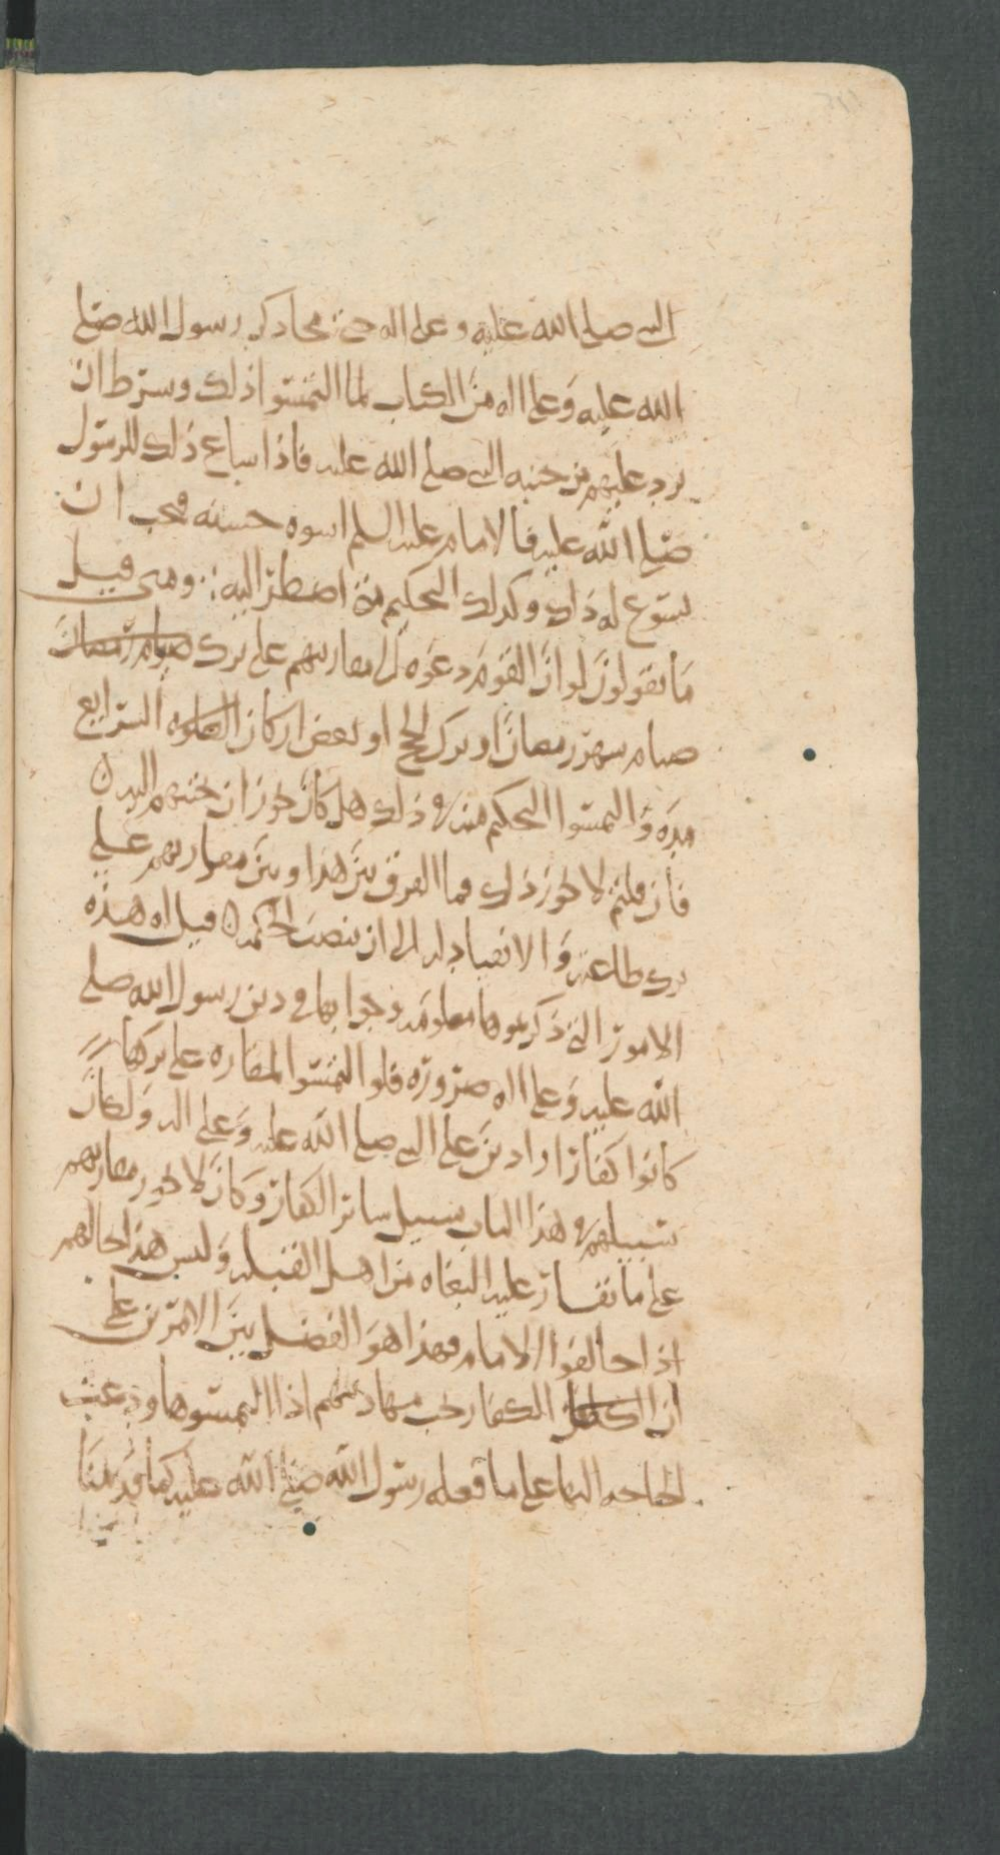 النبي صلى الله عليه وعلى اله حتى محا ذكر رسول الله صلى
الله عليه وعلى اله من الكتاب لما التمسوا ذلك وشرط ان
يرد عليهم من جنبه النبي صلى الله عليه فاذا ساغ ذلك للرسول
صلى الله عليه فالامام عليه السلم اسوه حسنه فيجب ان
يسوغ له ذلك وكذلك التحكيم متى اضطر اليه ومتى قيل
ما تقولون لو ان القوم دعوه الى مقاربتهم على ترك صيام رمضان
صيام شهر رمضان او ترك الحج او بعض اركان الصلوه الشرايع
مده والتمسوا التحكيم منه في ذلك هل كان يجوز ان يجيبهم اليه
فان قلتم لا يجوز ذلك فما الفرق بين هذا وبين مقاربتهم على
ترك طاعته والانقياد له الى ان ينصب الحكمين قيل له هذه
الامور التي ذكرتموها معلوم وجوبها في دين رسول الله صلى
الله عليه وعلى اله ضروره فلو التمسوا المقاره على تركها
كانوا كفارا رادين على النبي صلى الله عليه وعلى اله ولكان
سبيلهم في هذا الباب سبيل سائر الكفار وكان لا يجوز مقاربتهم
على ما تقار عليه البغاه من اهل القبله وليس هذا حالهم
اذا خالفوا الامام فهذا هو الفصل بين الامرين على
ان الكفار يجب مهادنتهم اذا التمسوها ودعت
الحاجه اليها على ما فعله رسول الله صلى الله عليه كما قدمنا